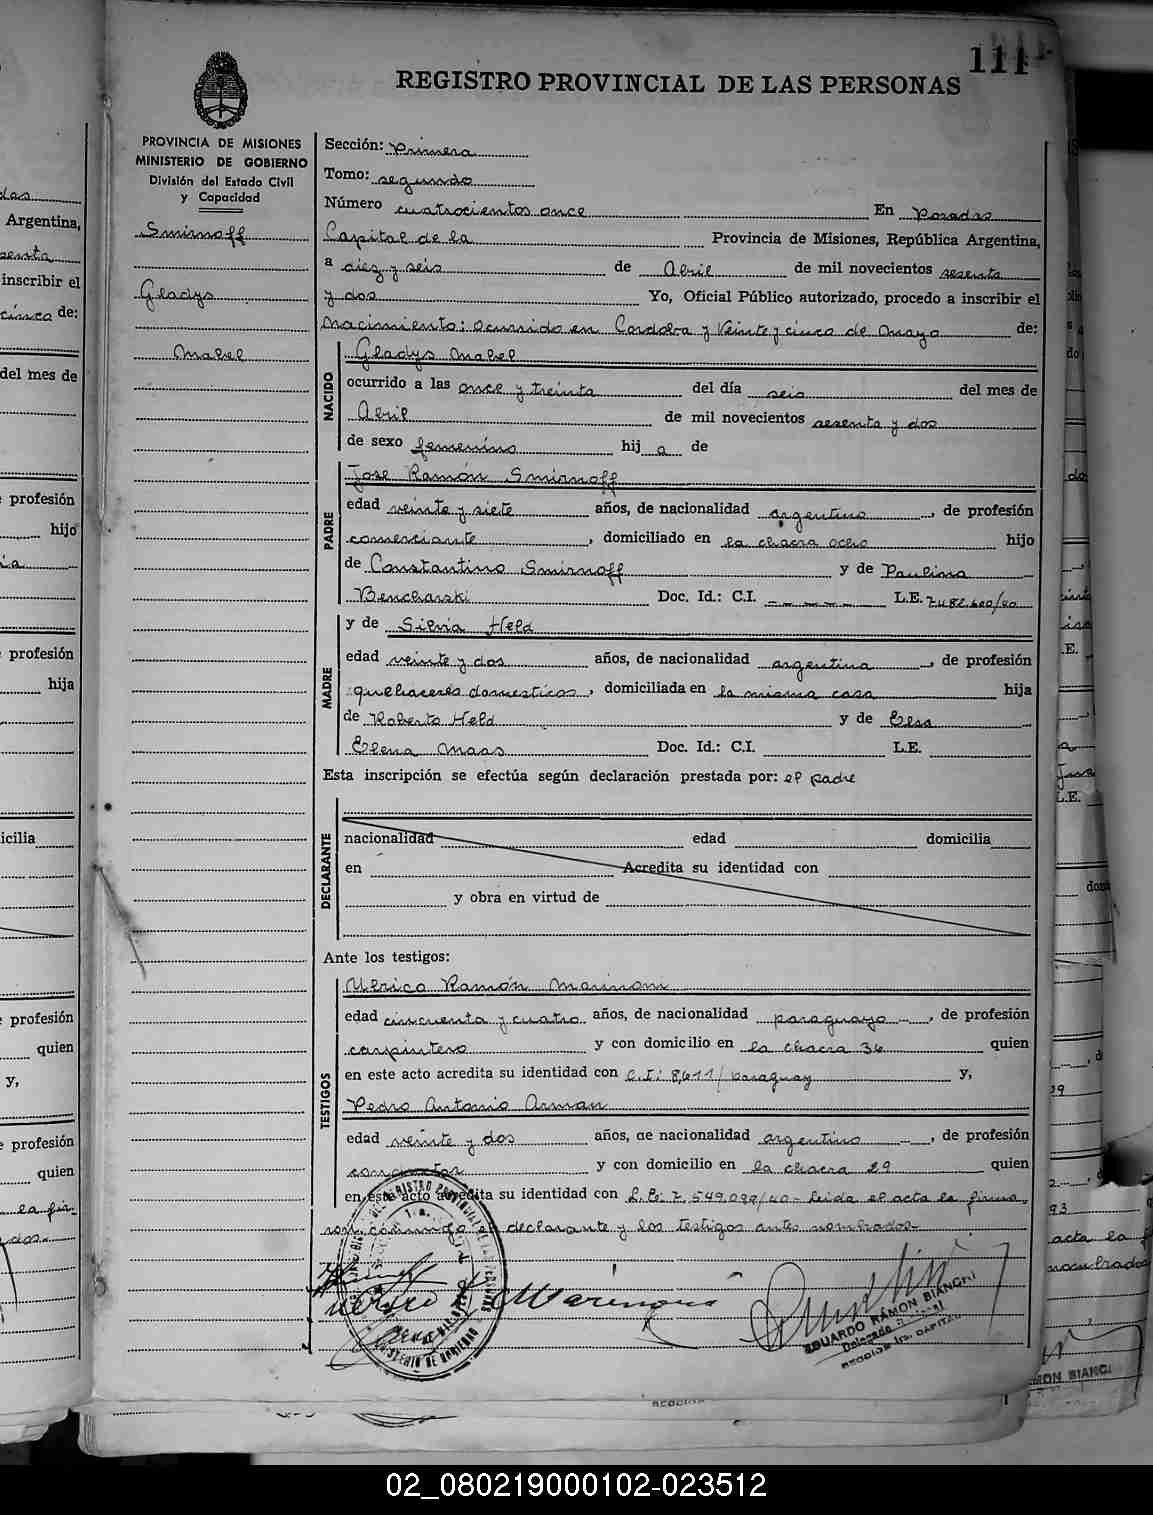 111
REGISTRO PROVINCIAL DE LAS PERSONAS
PROVINCIA DE MISIONES
MINISTERIO DE GOBIERNO
División del Estado Civil
y Capacidad
Smirnoff
Gladys
Mabel
Sección: Primera
Tomo: segundo
Número cuatrocientos once En Posadas
Capital de la Provincia de Misiones, República Argentina,
a diez y seis de Abril de mil novecientos sesenta
y dos Yo, Oficial Público autorizado, procedo a inscribir el
nacimiento: ocurrido en Cordoba y Veinte y cinco de Mayo de:
NACIDO
Gladys Mabel
ocurrido a las once y treinta del día seis del mes de
Abril de mil novecientos sesenta y dos
de sexo femenino hij a de
PADRE
José Ramón Smirnoff
edad veinte y siete años, de nacionalidad argentino, de profesión
comerciante, domiciliado en la chacra ocho hijo
de Constantino Smirnoff y de Paulina
Bencharski Doc. Id.: C.I. - - - - - L.E. 7.482.600/40
y de Silvia Held
MADRE
edad veinte y dos años, de nacionalidad argentina, de profesión
quehaceres domesticos, domiciliada en la misma casa hija
de Roberto Held y de Elsa
Elena Maas Doc. Id.: C.I. L.E.
Esta inscripción se efectúa según declaración prestada por: el padre
DECLARANTE
nacionalidad edad domicilia
en Acredita su identidad con
y obra en virtud de
Ante los testigos:
TESTIGOS
Ulrico Ramón Marinoni
edad cincuenta y cuatro años, de nacionalidad paraguayo, de profesión
carpintero y con domicilio en la chacra 36 quien
en este acto acredita su identidad con C.I: 8,611/paraguay y,
Pedro Antonio Arman
edad veinte y dos años, de nacionalidad argentino, de profesión
y con domicilio en la chacra 29 quien
en este acto acredita su identidad con L.E: 7.549.039/40- Leida el acta la firma
con conmigo el declarante y los testigos antes nombrados-
EDUARDO RAMON BIANCHI
Delegado
SECCION 1ra. CAPITAL
02_080219000102-023512